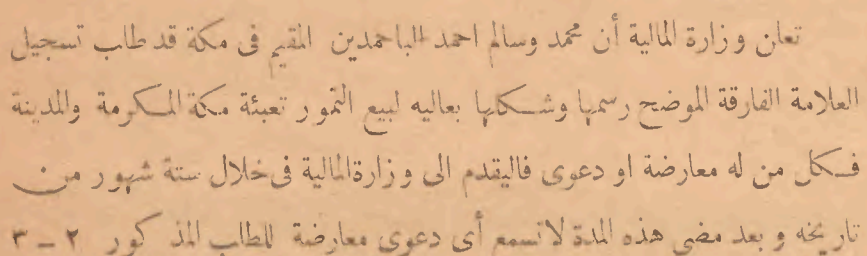 تعلن وزارة المالية أن محمد وسالم احمد الباحمدين المقيم فى مكة قد طلب تسجيل
العلامة الفارقة الموضح رسمها وشكلها بعاليه لبيع التمور تعبئة مكة المكرمة والمدينة
فكل من له معارضة او دعوى فاليقدم الى وزارة المالية فى خلال ستة شهور من
تاريخه وبعد مضى هذه المدة لاتسمع أى دعوى معارضة للطلب المذكور ٢ – ٣